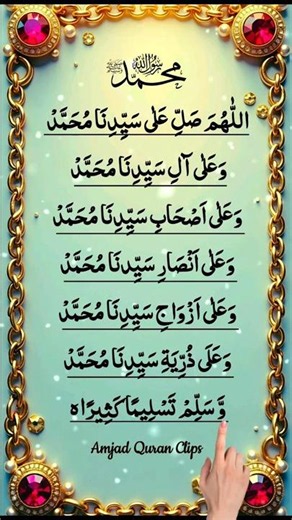 محمد رسول الله ﷺ
اللّٰهُمَّ صَلِّ عَلٰى سَيِّدِنَا مُحَمَّدْ
وَعَلٰى آلِ سَيِّدِنَا مُحَمَّدْ
وَعَلٰى اَصْحَابِ سَيِّدِنَا مُحَمَّدْ
وَعَلٰى اَنْصَارِ سَيِّدِنَا مُحَمَّدْ
وَعَلٰى اَزْوَاجِ سَيِّدِنَا مُحَمَّدْ
وَعَلَى ذُرِّيَةِ سَيِّدِنَا مُحَمَّدْ
وَّسَلِّمْ تَسْلِيمًا كَثِيرًاه
Amjad Quran Clips